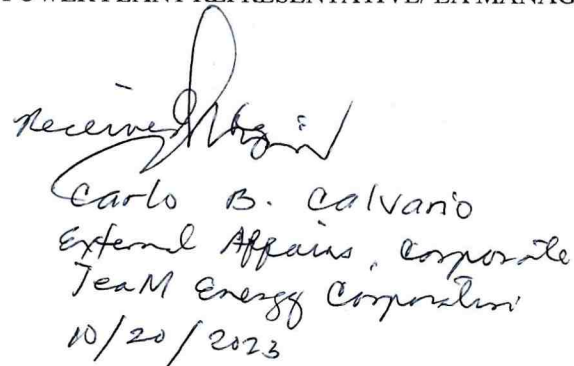 POWER PLANT REPRESENTATIVE/ EA MANAG
Received
Carlo B. Calvario
External Affairs, Corporate
TeaM Energy Corporation
10/20/2023